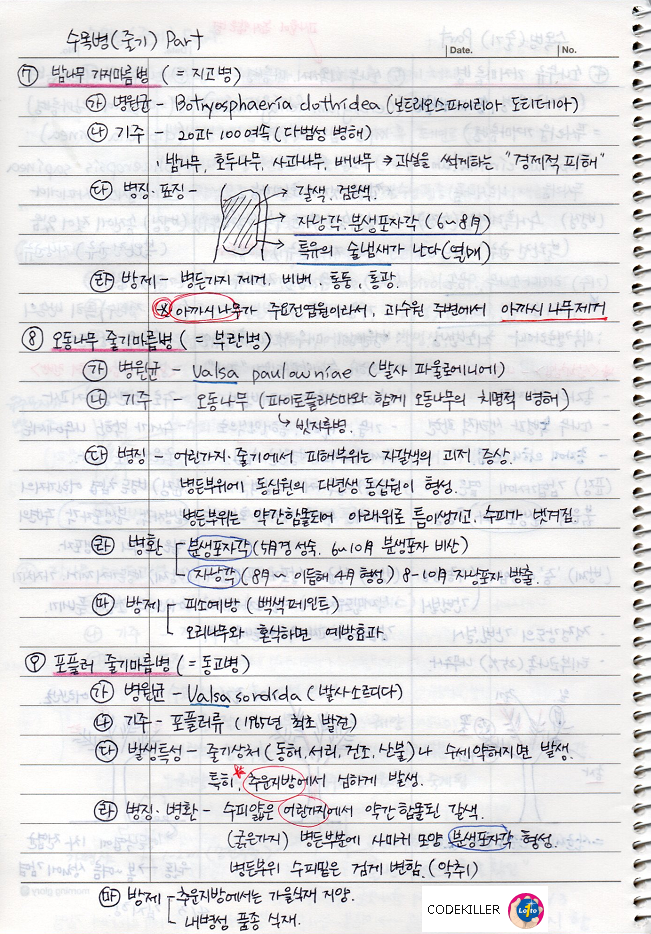 수목병(줄기) Part
Date.
No.
⑦ 밤나무 가지마름병 (= 지고병)
㉮ 병원균 - Botryosphaeria dothidea (보트리오스파이리아 도티데아)
㉯ 기주 - 20과 100여속 (다범성 병해)
밤나무, 호두나무, 사과나무, 배나무 → 과실을 썩게하는 "경제적 피해"
㉰ 병징·표징 -
← 갈색. 검은색.
→ 자낭각. 분생포자각 (6~8月)
→ 특유의 술냄새가 난다
㉱ 방제 - 병든가지 제거, 비배, 통풍, 통광.
※ 아까시 나무가 주요전염원이라서, 과수원 주변에서 아까시 나무제거
⑧ 오동나무 줄기마름병 (= 부란병)
㉮ 병원균 - Valsa paulowniae (발사 파울로니에)
㉯ 기주 - 오동나무 (파이토플라스마와 함께 오동나무의 치명적 병해)
↳ 빗자루병.
㉰ 병징 - 어린가지·줄기에서 피해부위는 자갈색의 괴저 증상.
병든부위에 동심원의 대변상 동심원이 형성.
병든부위는 약간함몰되어 아래위로 틈이생기고, 수피가 벗겨짐.
㉱ 병환
분생포자각 (5月경 성숙, 6~10月 분생포자 비산)
자낭각 (8月 ~ 이듬해 4月 형성) 8-10月 자낭포자 방출.
㉲ 방제
피소예방 (백색페인트)
오리나무와 혼식하면 예방효과
⑨ 포플러 줄기마름병 (= 동고병)
㉮ 병원균 - Valsa sordida (발사소르디다)
㉯ 기주 - 포플러류 (1985년 최초 발견)
㉰ 발생특성 - 줄기상처 (동해, 서리, 건조, 산불)나 수세약해지면 발생.
특히, 추운지방에서 심하게 발생.
㉱ 병징·병환 - 수피얇은 어린가지에서 약간함몰된 갈색.
(굵은가지) 병든부분에 사마귀 모양 분생포자각 형성.
병든부위 수피밑은 검게 변함. (악취)
㉲ 방제
추운지방에서는 가을식재 지양.
내병성 품종 식재.
CODEKILLER
Lotto